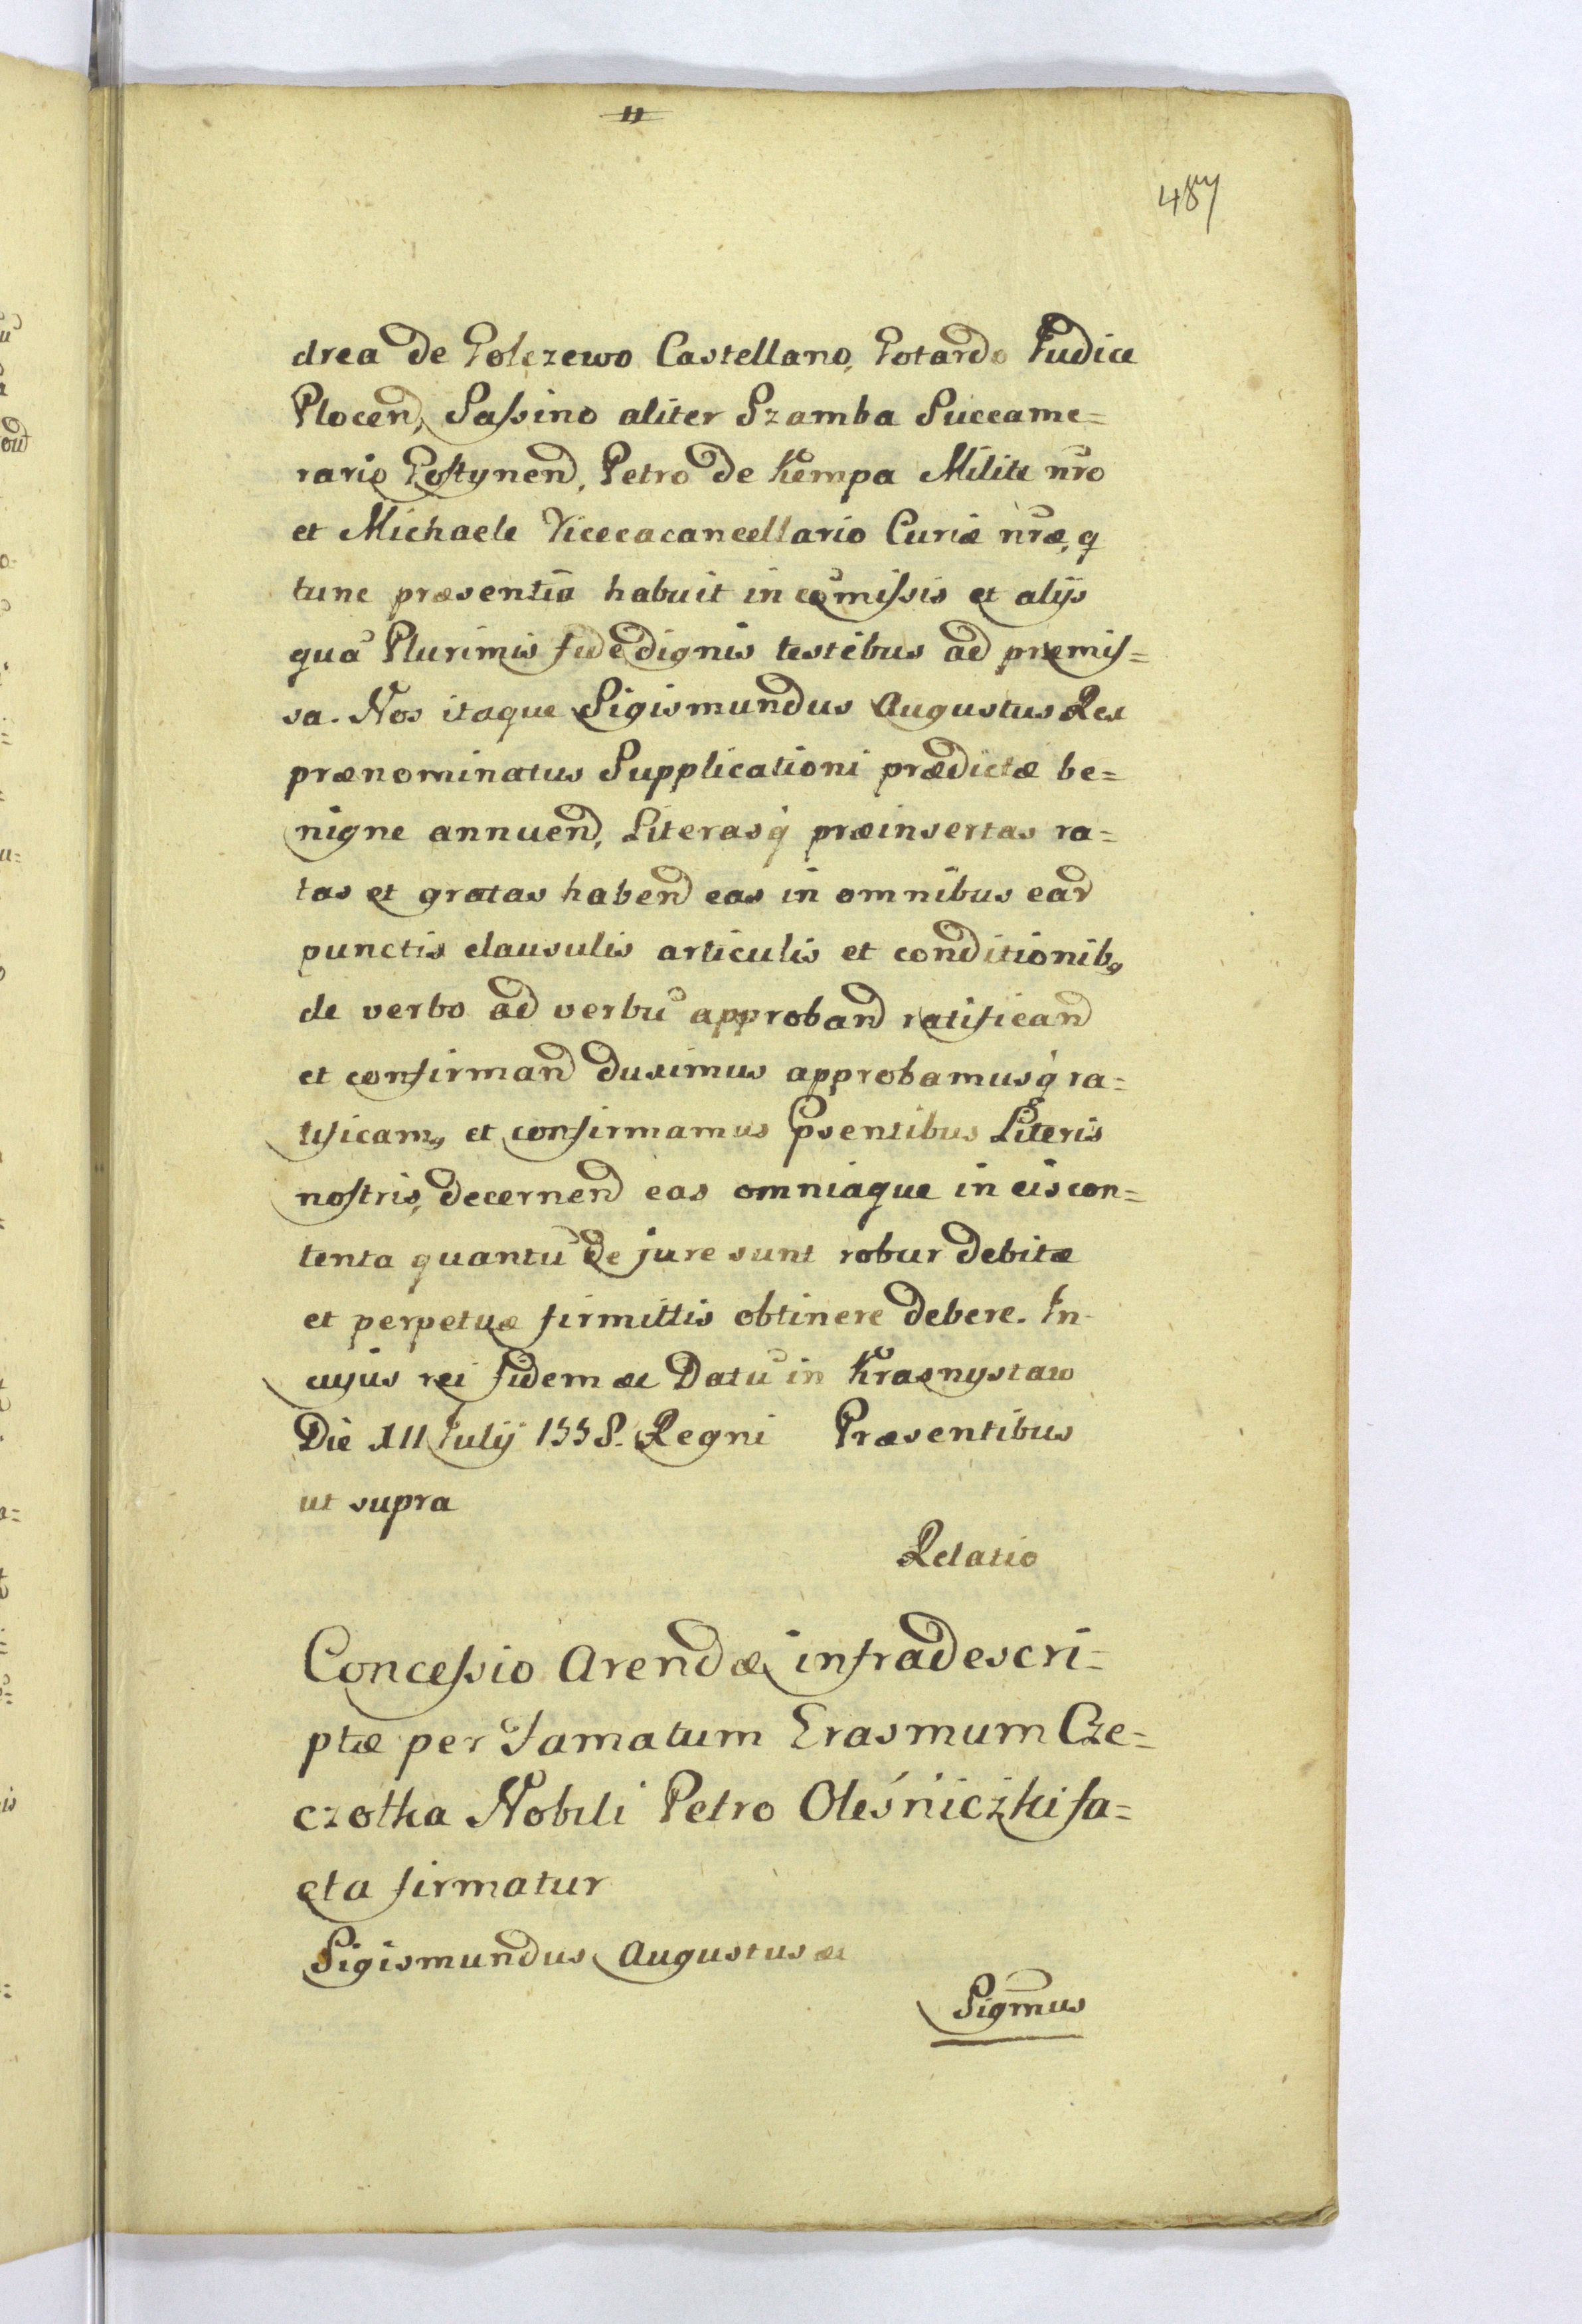 11
487
drea de Golczewo Castellano, Gotardo Judice
Plocen, Saſsino aliter Szamba Succame=
rario Goſtynen, Petro de Kempa Milite nr̃o
et Michaele Vicecacancellario Curiæ nr̃æ, q
tunc præsentiā habuit in com̃iſsis et alijs
quā Plurimis fide dignis testibus ad præmiſ=
sa. Nos itaque Sigismundus Augustus Rex
prænominatus Supplicationi prædictæ be=
nigne annuend, Literasq́ præinsertas ra=
tas et gratas habend eas in omnibus ear
punctis clausulis articulis et conditionib9
de verbo ad verbũ approband ratificand
et confirmand duximus approbamusq́ ra=
tificam9 et confirmamus psentibus Literis
noſtris, decernend eas omniaque in eis con=
tenta quantũ de jure sunt robur debitæ
et perpetuæ firmittis obtinere debere. In
cujus rei fidem &c Datũ in Krasnystaw
Die XII Julij 1558. Regni Præsentibus
ut supra
Relatio
Conceſsio Arendæ infradescri=
ptæ per Famatum Erasmum Cze=
czotka Nobili Petro Oleśniczki fa=
cta firmatur
Sigismundus Augustus &c
Sigm̃us